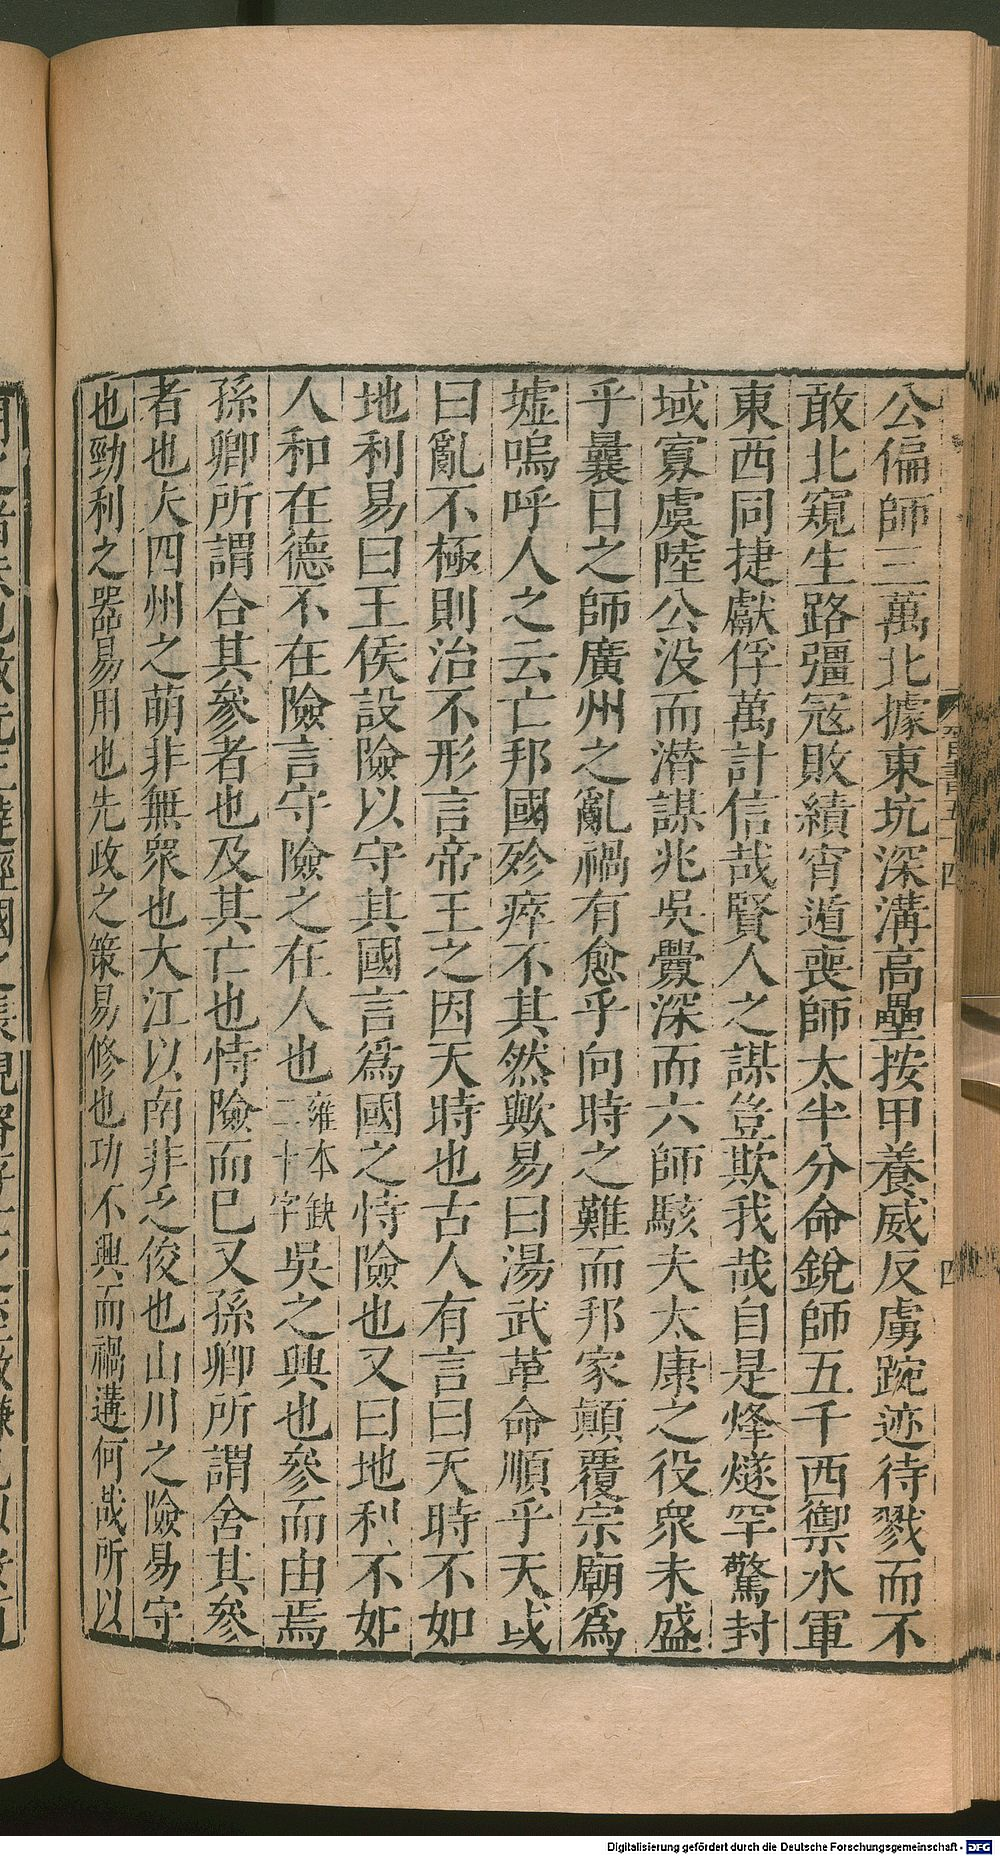 公偏師三萬北據東坑深溝高壘按甲養威反虜踠迹待戮而不
敢北窺生路彊寇敗績宵遁喪師太半分命銳師五千西禦水軍
東西同捷獻俘萬計信哉賢人之謀豈欺我哉自是烽燧罕驚封
域寡虞陸公没而潜謀兆吳釁深而六師駭夫太康之役衆未盛
乎曩日之師廣州之亂禍有愈乎向時之難而邦家顛覆宗廟爲
墟嗚呼人之云亡邦國殄瘁不其然歟易曰湯武革命順乎天或
曰亂不極則治不形言帝王之因天時也古人有言曰天時不如
地利易曰王侯設險以守其國言爲國之恃險也又曰地利不如
人和在德不在險言守險之在人也雍本缺二十字吳之興也參而由焉
孫卿所謂合其參者也及其亡也恃險而已又孫卿所謂舍其參
者也夫四州之萌非無衆也大江以南非乏俊也山川之險易守
也勁利之器易用也先政之策易修也功不興而禍遘何哉所以
晉書五十四
四
Digitalisierung gefördert durch die Deutsche Forschungsgemeinschaft - DFG